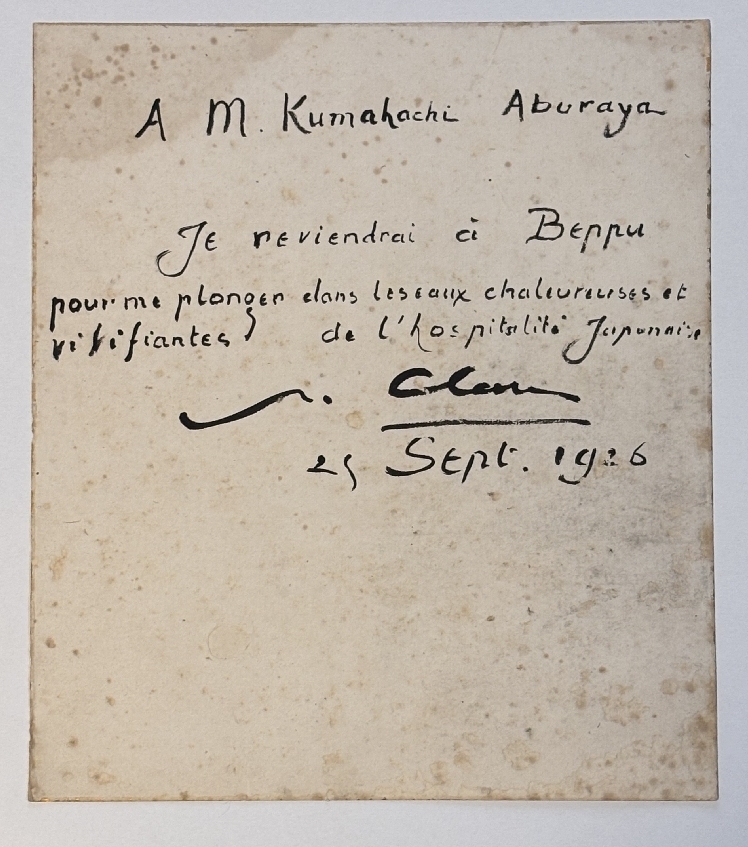 A M. Kumahachi Aburaya
Je reviendrai à Beppu
pour me plonger dans les eaux chaleureuses et
vivifiantes de l'hospitalité Japonaise
25 Sept. 1926